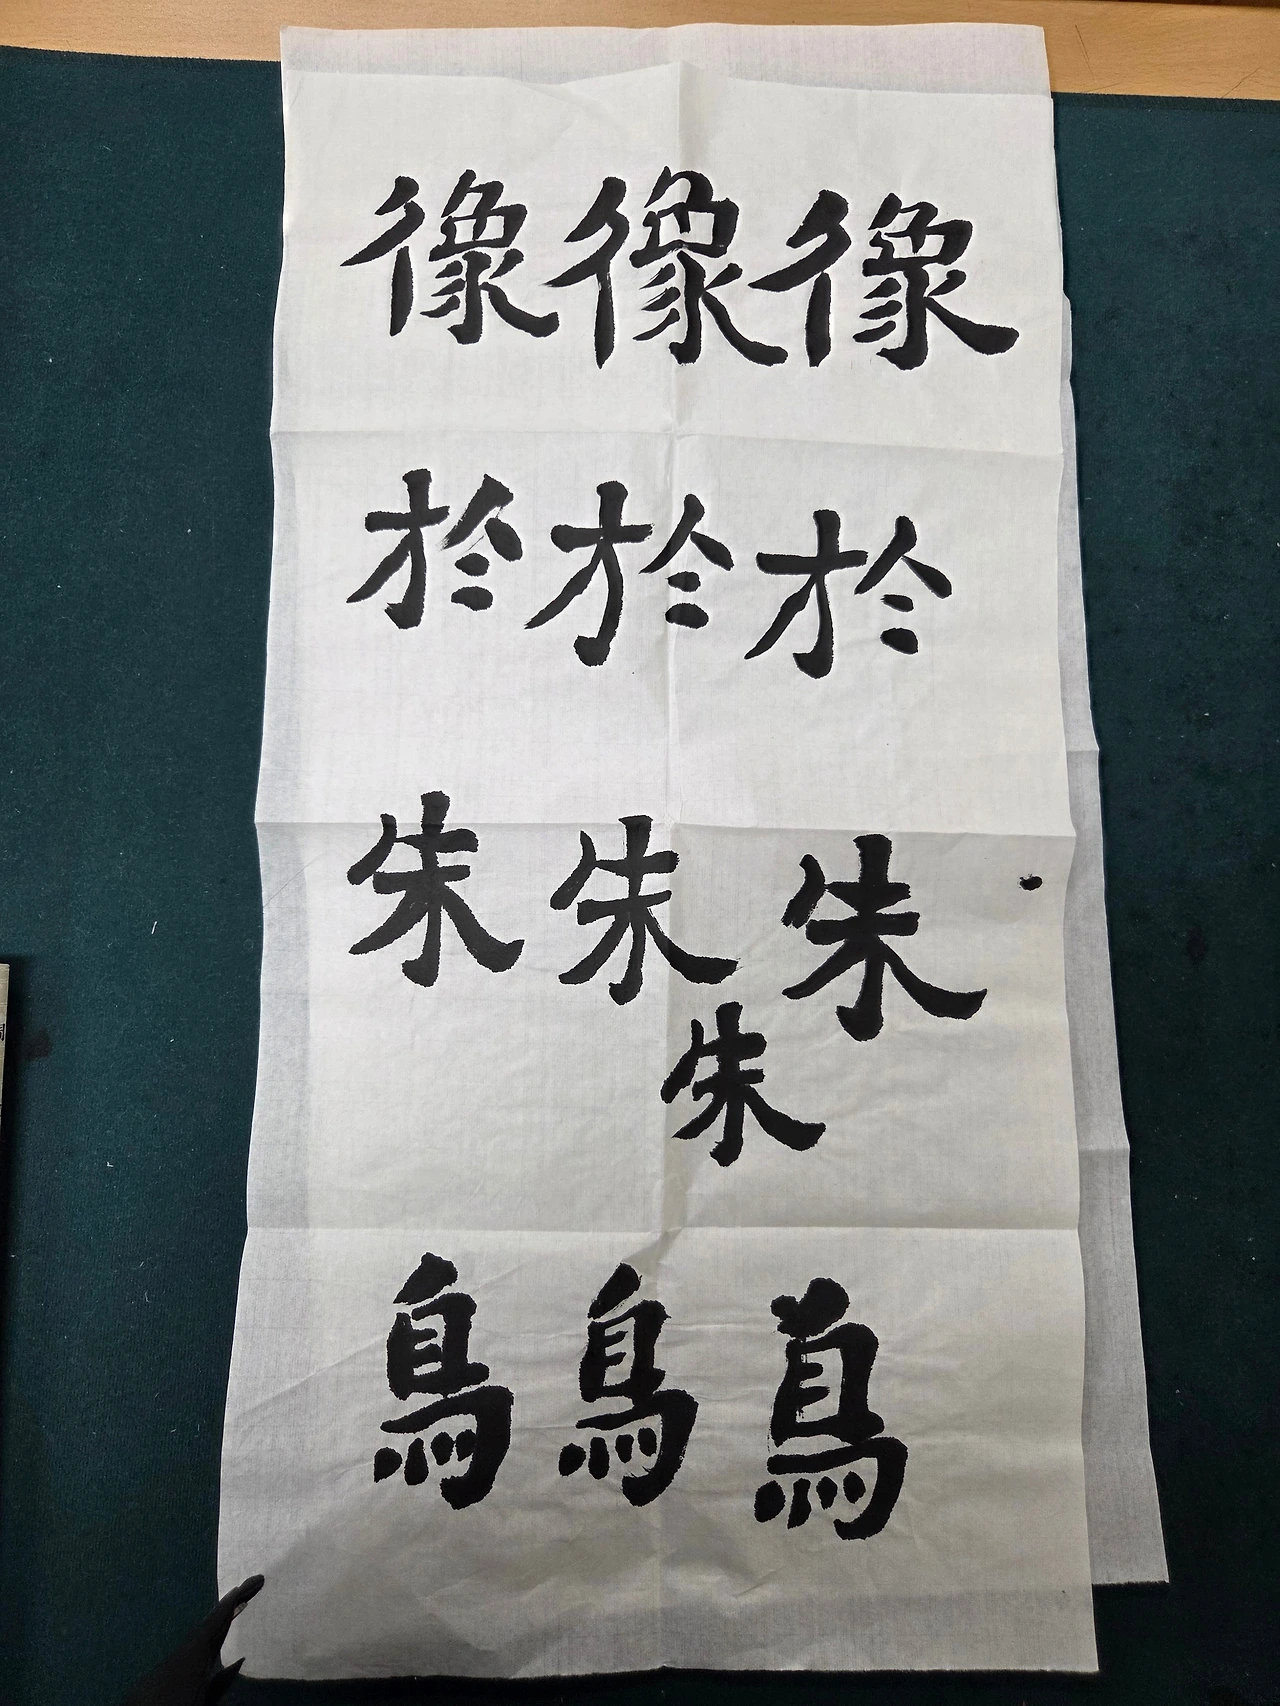 像像像
於於於
朱朱朱
朱
鳥鳥鳥